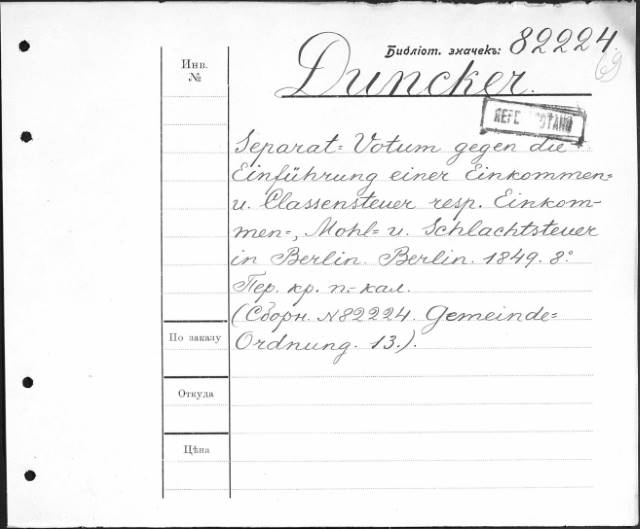 Библіот. значекъ: 82224
69
Duncker.
Инв.
№
Separat= Votum gegen die
Einführung einer Einkommen=
u. Classensteuer resp. Einkom-
men=, Mohl= u. Schlachtsteuer
in Berlin. Berlin. 1849. 8°.
Пер. кр. п.- кал.
(Сборн. №82224. Gemeinde=
По заказу
Ordnung. 13.).
Откуда
Цѣна